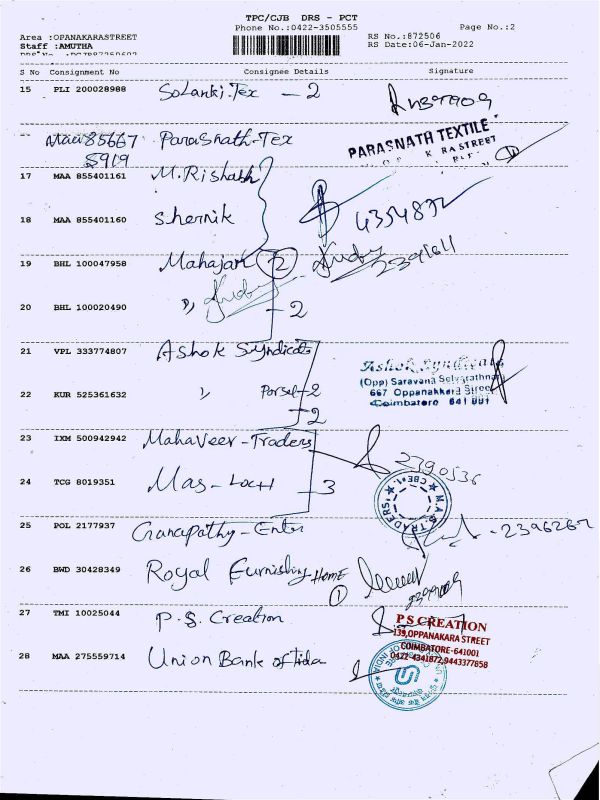 TPC/CJB DRS - PCT
Phone No.:0422-3505555 Page No.:2
Area :OPANAKARASTREET RS No.:872506
Staff :AMUTHA RS Date:06-Jan-2022
S No Consignment No Consignee Details Signature
15 PLI 200028988 Solanki.Tex - 2
Maa85667 Parasnath-Tex PARASNATH TEXTILE
5919
17 MAA 855401161 M.Rishabh
18 MAA 855401160 Shernik 4354872
19 BHL 100047958 Mahajan 2 2391611
20 BHL 100020490 " - 2
21 VPL 333774807 Ashok Syndicate Ashok Syndicate
(Opp) Saravana Selvarathnam
22 KUR 525361632 " Parsel-2 667 Oppanakkara Street
2 Coimbatore 641 001
23 IXM 500942942 Mahaveer-Traders 2390536
24 TCG 8019351 Mas - Loch - 3 M.A.S TRADERS CBE
25 POL 2177937 Ganapathy-Enter - 2396267
26 BWD 30428349 Royal Furnishing HOME
1
27 TMI 10025044 P.S. Creation P S CREATION
139,OPPANAKARA STREET
COIMBATORE-641001
28 MAA 275559714 Union Bank of Idia 0422-4341872,9443377858